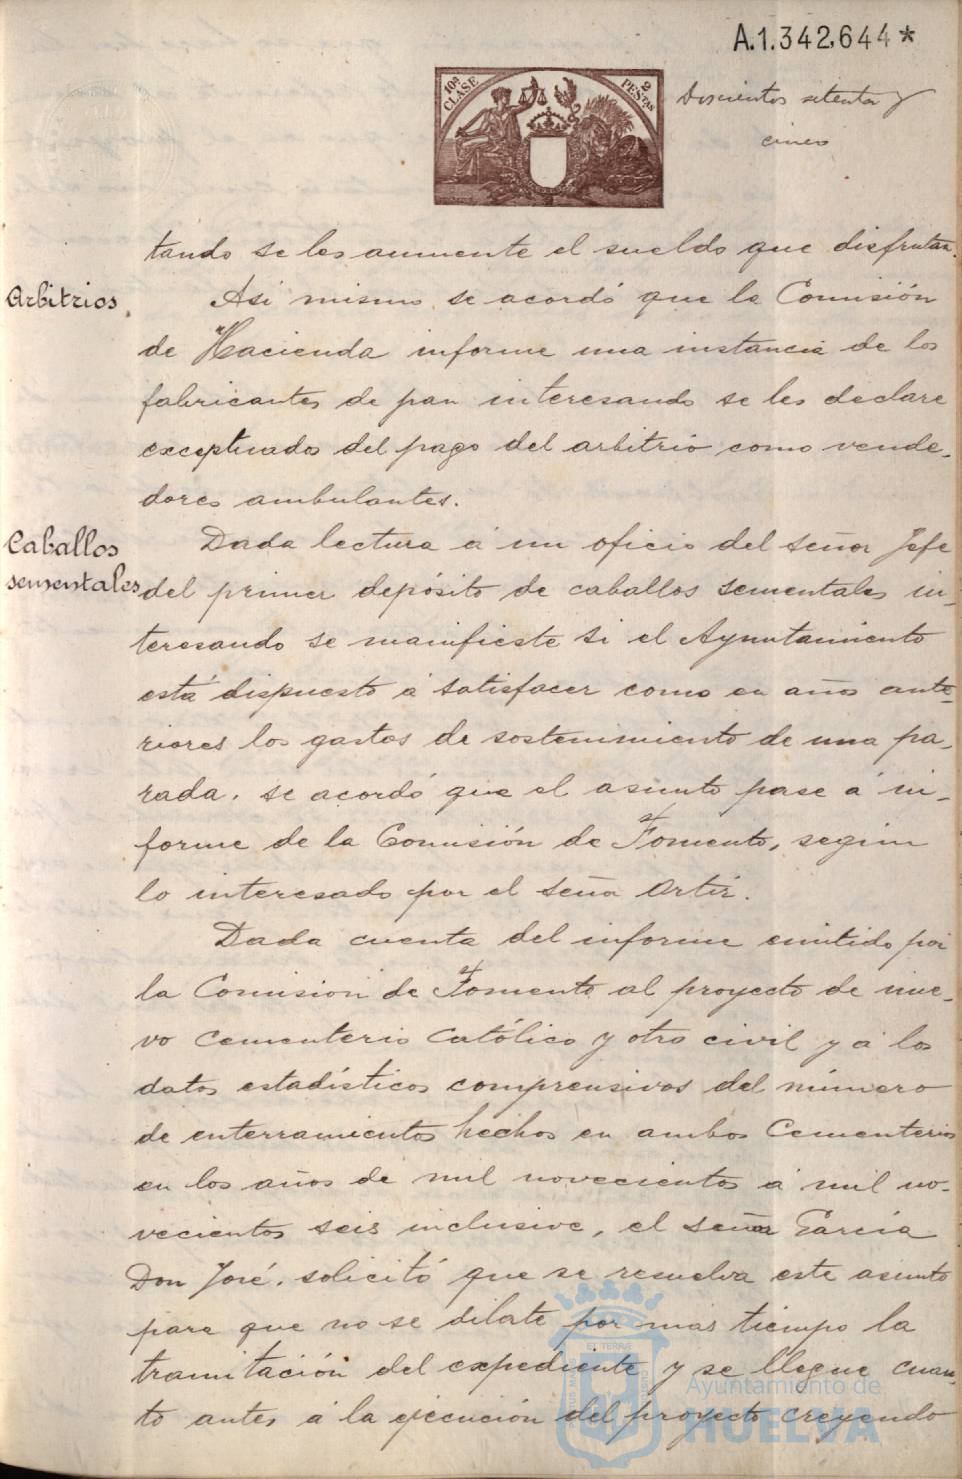 A.1.342,644*
10ª CLASE
2 PESTAS
Doscientos setenta y
cinco
tando se les aumente el sueldo que disfrutan.
Arbitrios
Asi mismo se acordó que la Comisión
de Hacienda informe una instancia de los
fabricantes de pan interesando se les declare
exceptuados del pago del arbitrio como vende-
dores ambulantes.
Caballos
sementales
Dada lectura á un oficio del señor Jefe
del primer depósito de caballos sementales in-
teresando se manifieste si el Ayuntamiento
está dispuesto á satisfacer como en años ante-
riores los gastos de sostenimiento de una pa-
rada, se acordó que el asunto pase á in-
forme de la Comisión de Fomento, segun
lo interesado por el señor Ortiz.
Dada cuenta del informe emitido por
la Comision de Fomento al proyecto de nue-
vo Cementerio Católico y otro civil y á los
datos estadísticos comprensivos del número
de enterramientos hechos en ambos Cementerios
en los años de mil novecientos á mil no-
vecientos seis inclusive, el señor García
Don José, solicitó que se resuelva este asunto
para que no se dilate por mas tiempo la
tramitación del expediente y se llegue cuan-
to antes á la ejecución del proyecto creyendo
Ayuntamiento de
HUELVA